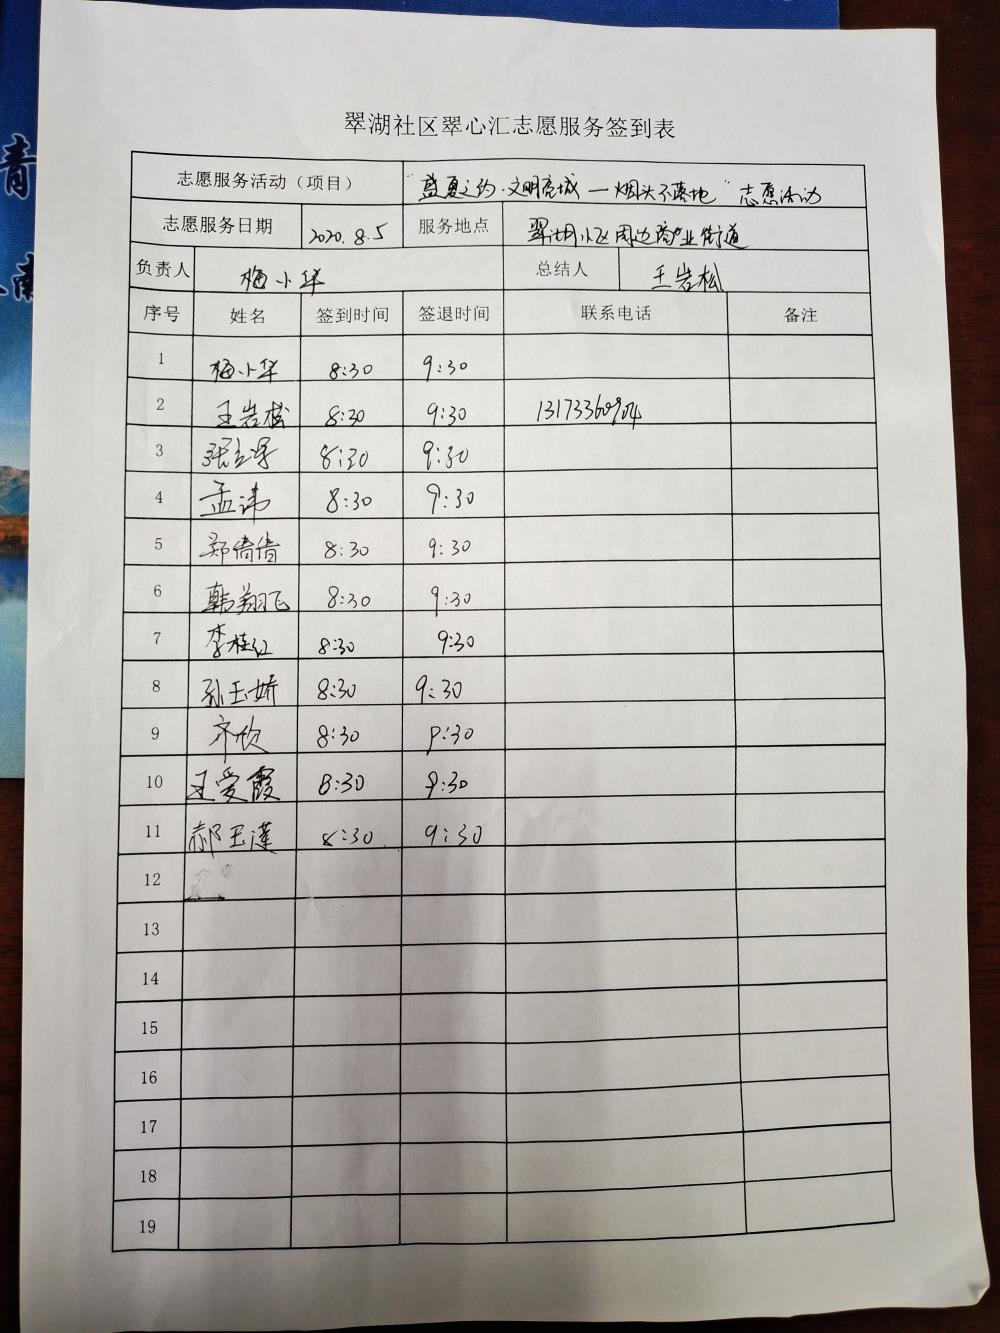 青
南
翠湖社区翠心汇志愿服务签到表
志愿服务活动（项目） “盛夏之约·文明亮城—烟头不落地”志愿活动
志愿服务日期 2020.8.5 服务地点 翠湖小区周边商业街道
负责人 梅小华 总结人 王岩松
序号 姓名 签到时间 签退时间 联系电话 备注
1 梅小华 8:30 9:30
2 王岩松 8:30 9:30
3 8:30 9:30
4 孟讳 8:30 9:30
5 郑倩倩 8:30 9:30
6 韩翔飞 8:30 9:30
7 李桂红 8:30 9:30
8 孙玉娇 8:30 9:30
9 齐欣 8:30 9:30
10 王爱霞 8:30 9:30
11 郝玉莲 8:30 9:30
12
13
14
15
16
17
18
19